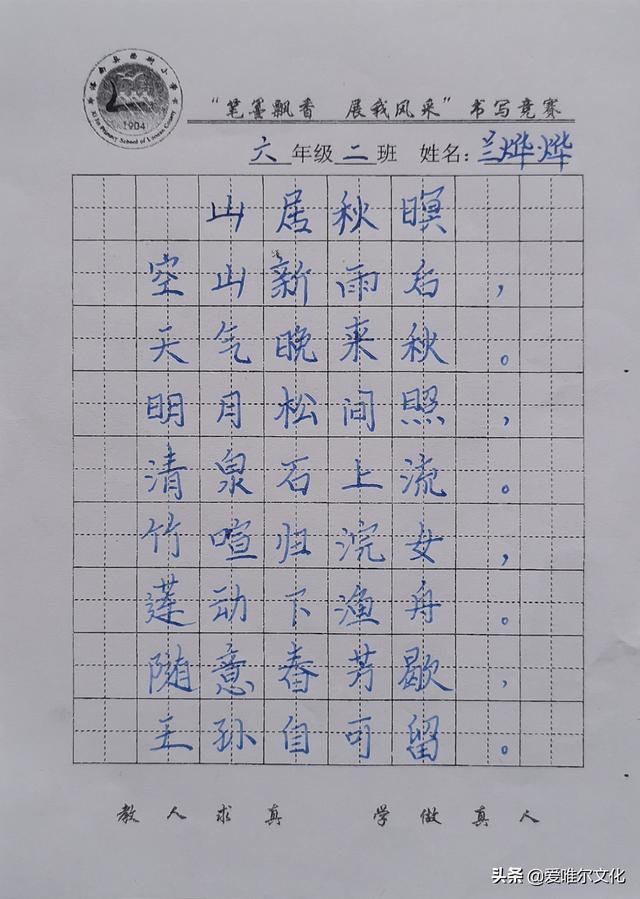 1904
“笔墨飘香 展我风采”书写竞赛
六年级二班 姓名:兰烨烨
山居秋暝
空山新雨后,
天气晚来秋。
明月松间照,
清泉石上流。
竹喧归浣女,
莲动下渔舟。
随意春芳歇,
王孙自可留。
教人求真 学做真人
头条@爱唯尔文化